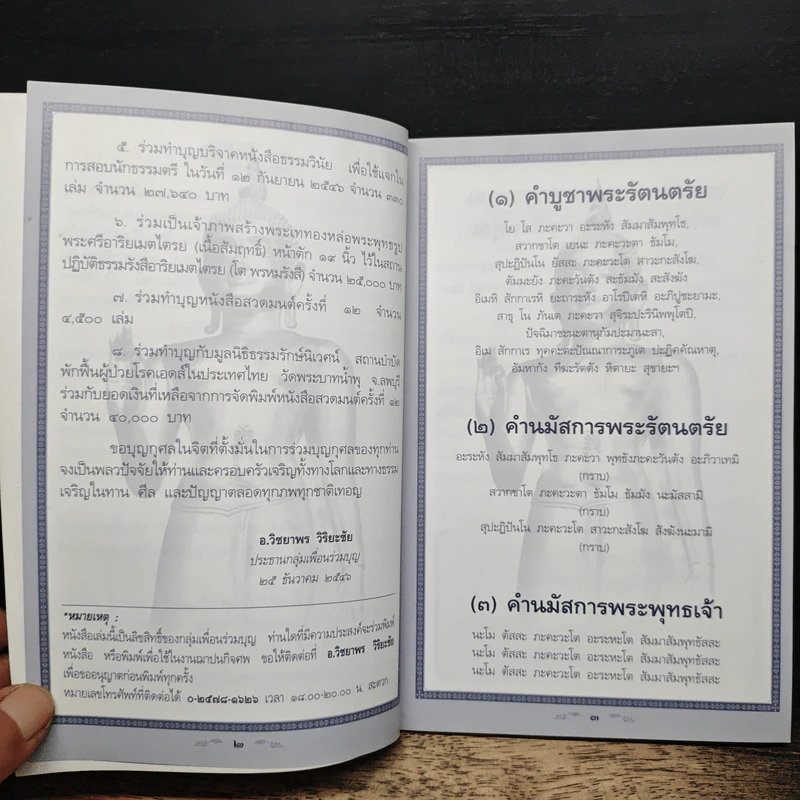 ๕. ร่วมทำบุญบริจาคหนังสือธรรมวินัย เพื่อใช้แจกใน
การสอบนักธรรมตรี ในวันที่ ๑๒ กันยายน ๒๕๔๖ จำนวน ๓๓๐
เล่ม จำนวน ๒๗,๖๔๐ บาท
๖. ร่วมเป็นเจ้าภาพสร้างพระเททองหล่อพระพุทธรูป
พระศรีอาริยเมตไตรย (เนื้อสัมฤทธิ์) หน้าตัก ๑๙ นิ้ว ไว้ในสถาน
ปฏิบัติธรรมรังสีอาริยเมตไตรย (โต พรหมรังสี) จำนวน ๒๕,๐๐๐ บาท
๗. ร่วมทำบุญหนังสือสวดมนต์ครั้งที่ ๑๒ จำนวน
๔,๕๐๐ เล่ม
๘. ร่วมทำบุญกับมูลนิธิธรรมรักษ์นิเวศน์ สถานบำบัด
พักฟื้นผู้ป่วยโรคเอดส์ในประเทศไทย วัดพระบาทน้ำพุ จ.ลพบุรี
ร่วมกับยอดเงินที่เหลือจากการจัดพิมพ์หนังสือสวดมนต์ครั้งที่ ๑๒
จำนวน ๔๐,๐๐๐ บาท
ขอบุญกุศลในจิตที่ตั้งมั่นในการร่วมบุญกุศลของทุกท่าน
จงเป็นพลวปัจจัยให้ท่านและครอบครัวเจริญทั้งทางโลกและทางธรรม
เจริญในทาน ศีล และปัญญาตลอดทุกภพทุกชาติเทอญ
อ.วิชยาพร วิริยะชัย
ประธานกลุ่มเพื่อนร่วมบุญ
๒๕ ธันวาคม ๒๕๔๖
*หมายเหตุ :
หนังสือเล่มนี้เป็นลิขสิทธิ์ของกลุ่มเพื่อนร่วมบุญ ท่านใดที่มีความประสงค์จะร่วมพิมพ์
หนังสือ หรือพิมพ์เพื่อใช้ในงานฌาปนกิจศพ ขอให้ติดต่อที่ อ.วิชยาพร วิริยะชัย
เพื่อขออนุญาตก่อนพิมพ์ทุกครั้ง
หมายเลขโทรศัพท์ที่ติดต่อได้ ๐-๒๕๗๘-๑๖๒๖ เวลา ๑๘.๐๐-๒๐.๐๐ น. สะดวก
๒
(๑) คำบูชาพระรัตนตรัย
โย โส ภะคะวา อะระหัง สัมมาสัมพุทโธ,
สวากขาโต เยนะ ภะคะวะตา ธัมโม,
สุปะฏิปันโน ยัสสะ ภะคะวะโต สาวะกะสังโฆ,
ตัมมะยัง ภะคะวันตัง สะธัมมัง สะสังฆัง
อิเมหิ สักกาเรหิ ยะถาระหัง อาโรปิเตหิ อะภิปูชะยามะ,
สาธุ โน ภันเต ภะคะวา สุจิระปะรินิพพุโตปิ,
ปัจฉิมาชะนะตานุกัมปะมานะสา,
อิเม สักกาเร ทุคคะตะปัณณาการะภูเต ปะฏิคคัณหาตุ,
อัมหากัง ทีฆะรัตตัง หิตายะ สุขายะฯ
(๒) คำนมัสการพระรัตนตรัย
อะระหัง สัมมาสัมพุทโธ ภะคะวา พุทธังภะคะวันตัง อะภิวาเทมิ
(กราบ)
สวากขาโต ภะคะวะตา ธัมโม ธัมมัง นะมัสสามิ
(กราบ)
สุปะฏิปันโน ภะคะวะโต สาวะกะสังโฆ สังฆังนะมามิ
(กราบ)
(๓) คำนมัสการพระพุทธเจ้า
นะโม ตัสสะ ภะคะวะโต อะระหะโต สัมมาสัมพุทธัสสะ
นะโม ตัสสะ ภะคะวะโต อะระหะโต สัมมาสัมพุทธัสสะ
นะโม ตัสสะ ภะคะวะโต อะระหะโต สัมมาสัมพุทธัสสะ
๓